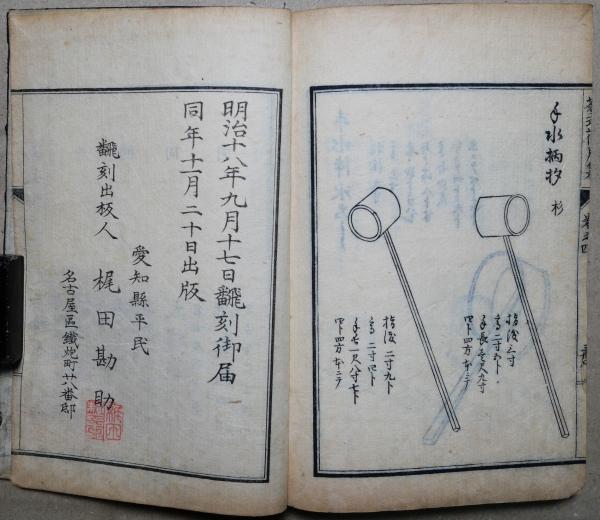 手水柄杓 杉
指渡 三寸
高 二寸五卜
手長 壱尺九寸
四卜四方本ニテ
指渡 二寸九卜
高 二寸四卜
手七 一尺八寸七卜
四卜四方本ニテ
明治十八年九月十七日翻刻御届
同年十一月二十日出版
愛知縣平民
翻刻出板人 梶田勘助
名古屋區鐵炮町廿八番邸